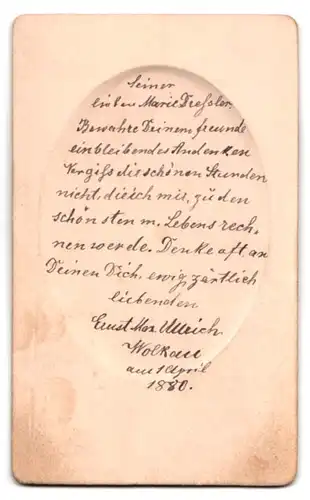 Seiner
lieben Marie Dressler.
Bewahre Deinem freunde
ein bleibendes Andenken
Vergiss die schönen Stunden
nicht, die ich mir, zu den
schönsten m. Lebens rech-
nen werde. Denke oft an
Deinen Dich, ewig, zärtlich
liebenden
Ernst Max Ullrich.
Wolkau
am 1 April
1880.